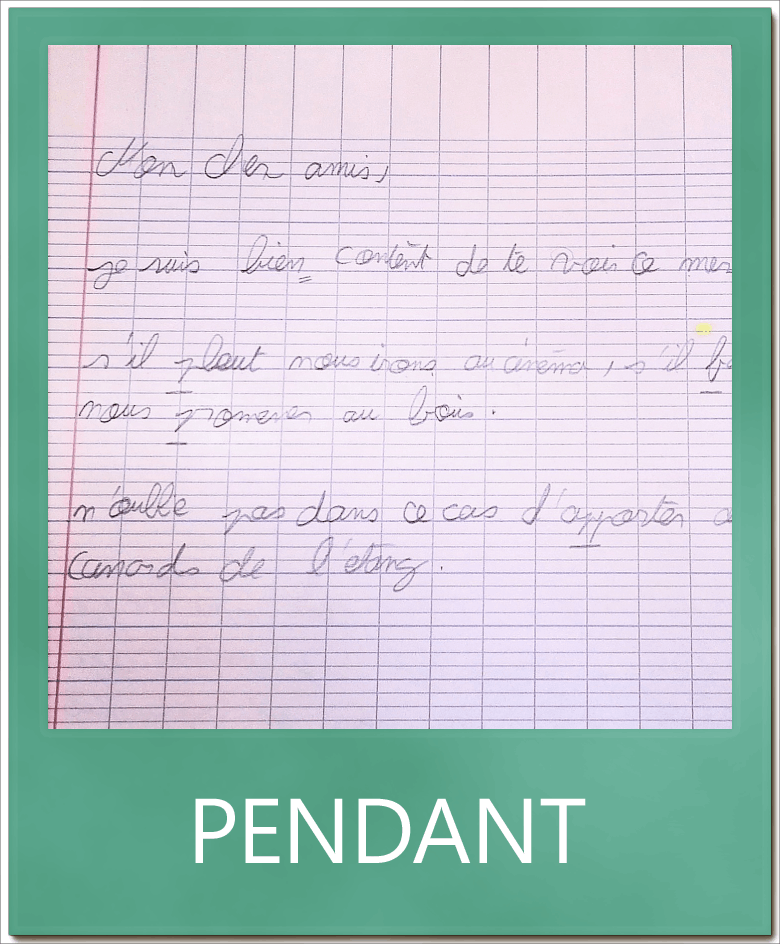 Mon cher amis,
je suis bien content de te voir ce mer
s'il pleut nous irons au cinéma, s'il
nous promener au bois.
n'oublie pas dans ce cas d'apporter
canards de l'étang.
PENDANT